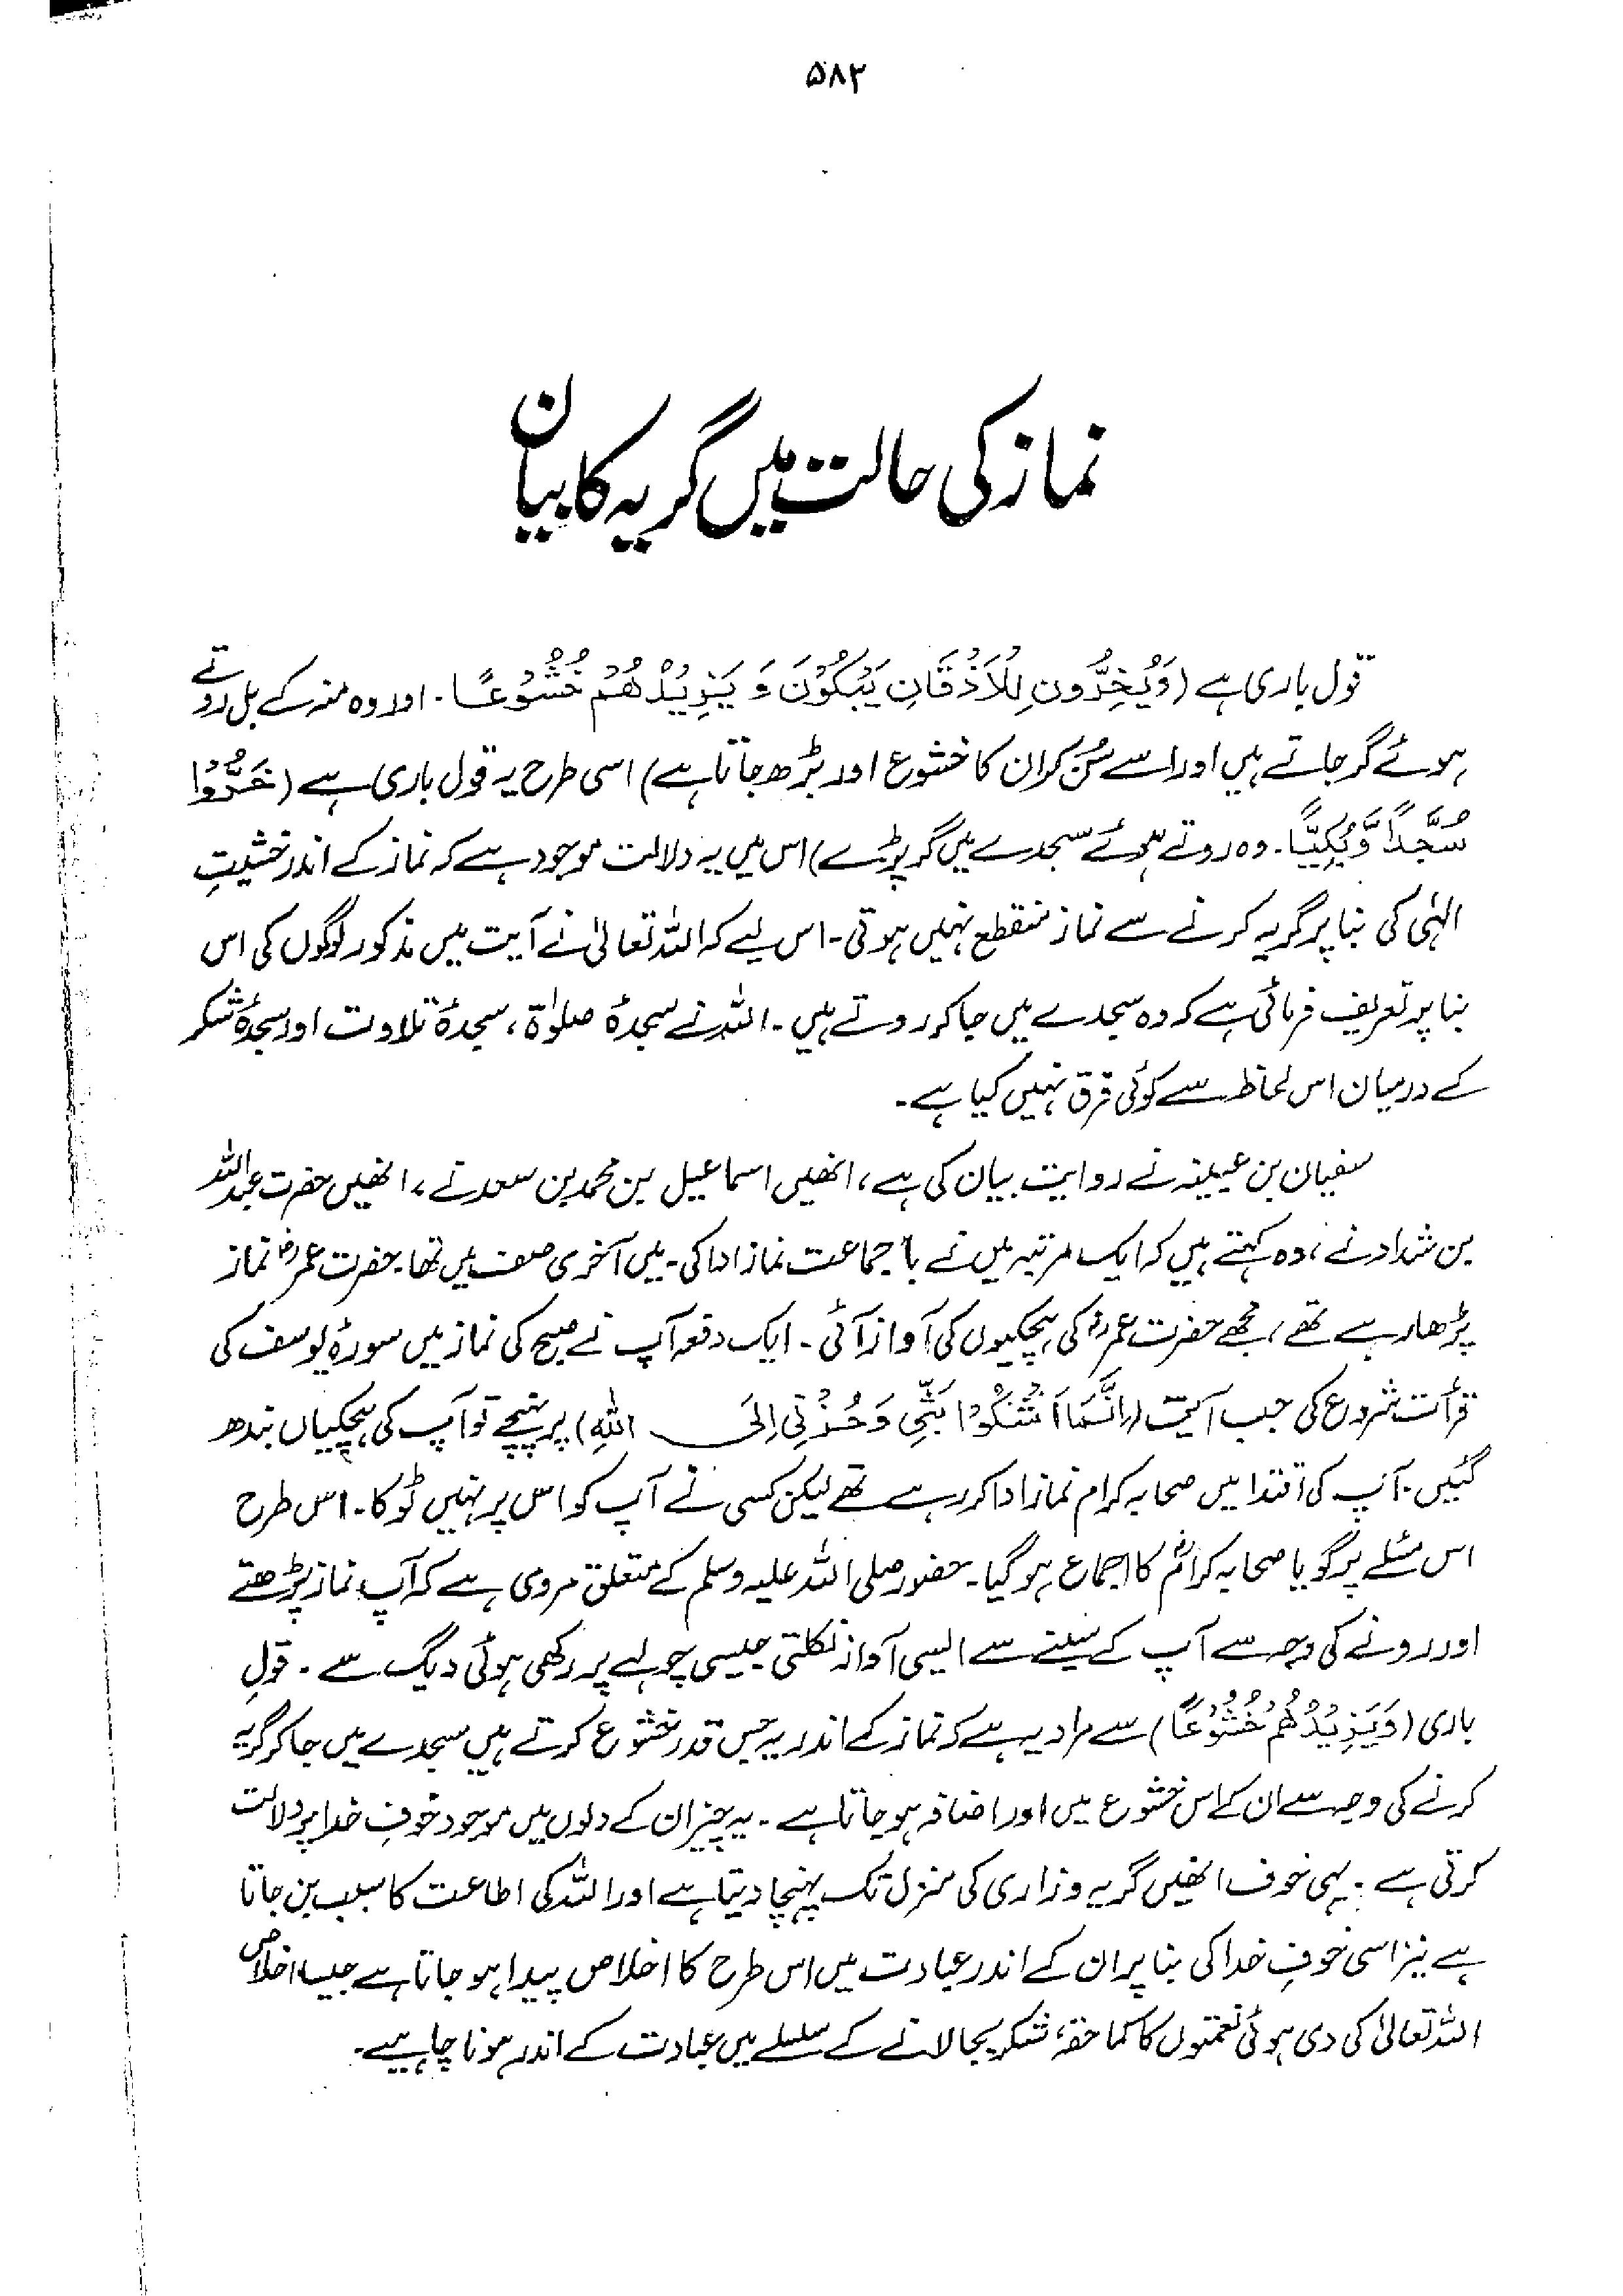 ۵۸۳
نماز کی حالت میں گریہ کا بیان
قول باری ہے (وَيَخِرُّونَ لِلْاَذْقَانِ يَبْكُوْنَ وَ يَزِيْدُهُمْ خُشُوْعًا۔ اور وہ منہ کے بل روتے
ہوئے گر جاتے ہیں اور اسے سُن کر ان کا خشوع اور بڑھ جاتا ہے) اسی طرح یہ قول باری ہے (خَرُّوْا
سُجَّدًا وَّبُكِيًّا۔ وہ روتے ہوئے سجدے میں گر پڑے) اس میں یہ دلالت موجود ہے کہ نماز کے اندر خشیتِ
الہٰی کی بنا پر گریہ کرنے سے نماز منقطع نہیں ہوتی۔ اس لیے کہ اللہ تعالیٰ نے آیت میں مذکور لوگوں کی اس
بنا پر تعریف فرمائی ہے کہ وہ سجدے میں جا کر روتے ہیں۔ اللہ نے سجدۂ صلوٰۃ، سجدۂ تلاوت اور سجدۂ شکر
کے درمیان اس لحاظ سے کوئی فرق نہیں کیا ہے۔
سفیان بن عیینہ نے روایت بیان کی ہے، انھیں اسماعیل بن محمد بن سعد نے، انھیں حضرت عبداللہ
بن شداد نے، وہ کہتے ہیں کہ ایک مرتبہ میں نے با جماعت نماز ادا کی۔ میں آخری صف میں تھا۔ حضرت عمرؓ نماز
پڑھا رہے تھے، مجھے حضرت عمرؓ کی ہچکیوں کی آواز آئی۔ ایک دفعہ آپ نے صبح کی نماز میں سورۂ یوسف کی
قرأت شروع کی جب آیت (اِنَّمَا اَشْكُوْا بَثِّي وَحُزْنِي اِلَى اللهِ) پر پہنچے تو آپ کی ہچکیاں بندھ
گئیں۔ آپ کی اقتدا میں صحابہ کرام نماز ادا کر رہے تھے لیکن کسی نے آپ کو اس پر نہیں ٹوکا۔ اس طرح
اس مسئلے پر گویا صحابہ کرامؓ کا اجماع ہو گیا۔ حضور صلی اللہ علیہ وسلم کے متعلق مروی ہے کہ آپ نماز پڑھتے
اور رونے کی وجہ سے آپ کے سینے سے ایسی آواز نکلتی جیسی چولہے پر رکھی ہوئی دیگ سے۔ قولِ
باری (وَيَزِيْدُهُمْ خُشُوْعًا) سے مراد یہ ہے کہ نماز کے اندر یہ جس قدر خشوع کرتے ہیں سجدے میں جا کر گریہ
کرنے کی وجہ سے ان کے اس خشوع میں اور اضافہ ہو جاتا ہے۔ یہ چیز ان کے دلوں میں موجود خوفِ خدا پر دلالت
کرتی ہے۔ یہی خوف انھیں گریہ و زاری کی منزل تک پہنچا دیتا ہے اور اللہ کی اطاعت کا سبب بن جاتا
ہے نیز اسی خوفِ خدا کی بنا پر ان کے اندر عبادت میں اس طرح کا اخلاص پیدا ہو جاتا ہے جیسا اخلاص
اللہ تعالیٰ کی دی ہوئی نعمتوں کا کما حقہٗ شکر بجا لانے کے سلسلے میں عبادت کے اندر ہونا چاہیے۔